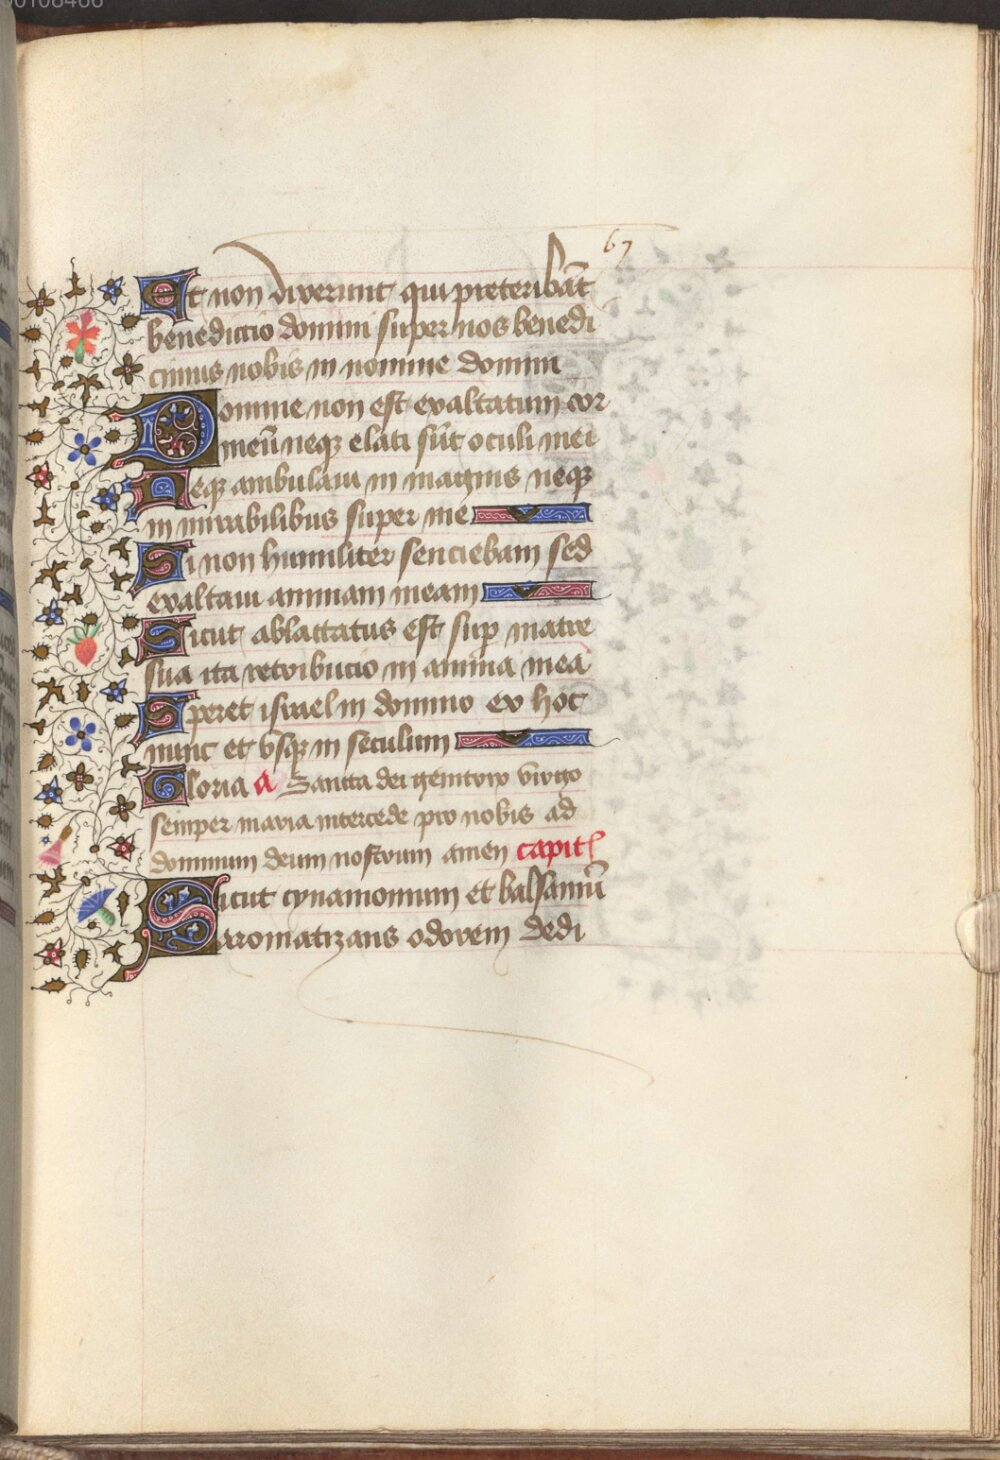 00108466
67
Et non dixerunt qui preteribāt
benedictio domini super nos benedi
cimus nobis in nomine domini
Domine non est exaltatum cor
meū neqꝫ elati sūt oculi mei
Neqꝫ ambulaui in magnis neqꝫ
in mirabilibus super me
Si non humiliter senciebam sed
exaltaui animam meam
Sicut ablactatus est sup matre
sua ita retribucio in anima mea
Speret israel in domino ex hoc
nunc et vsqꝫ in seculum
Gloria a Sancta dei genitrix virgo
semper maria intercede pro nobis ad
dominum deum nostrum amen capitl
Sicut cynamomum et balsamū
aromatizans odorem dedi